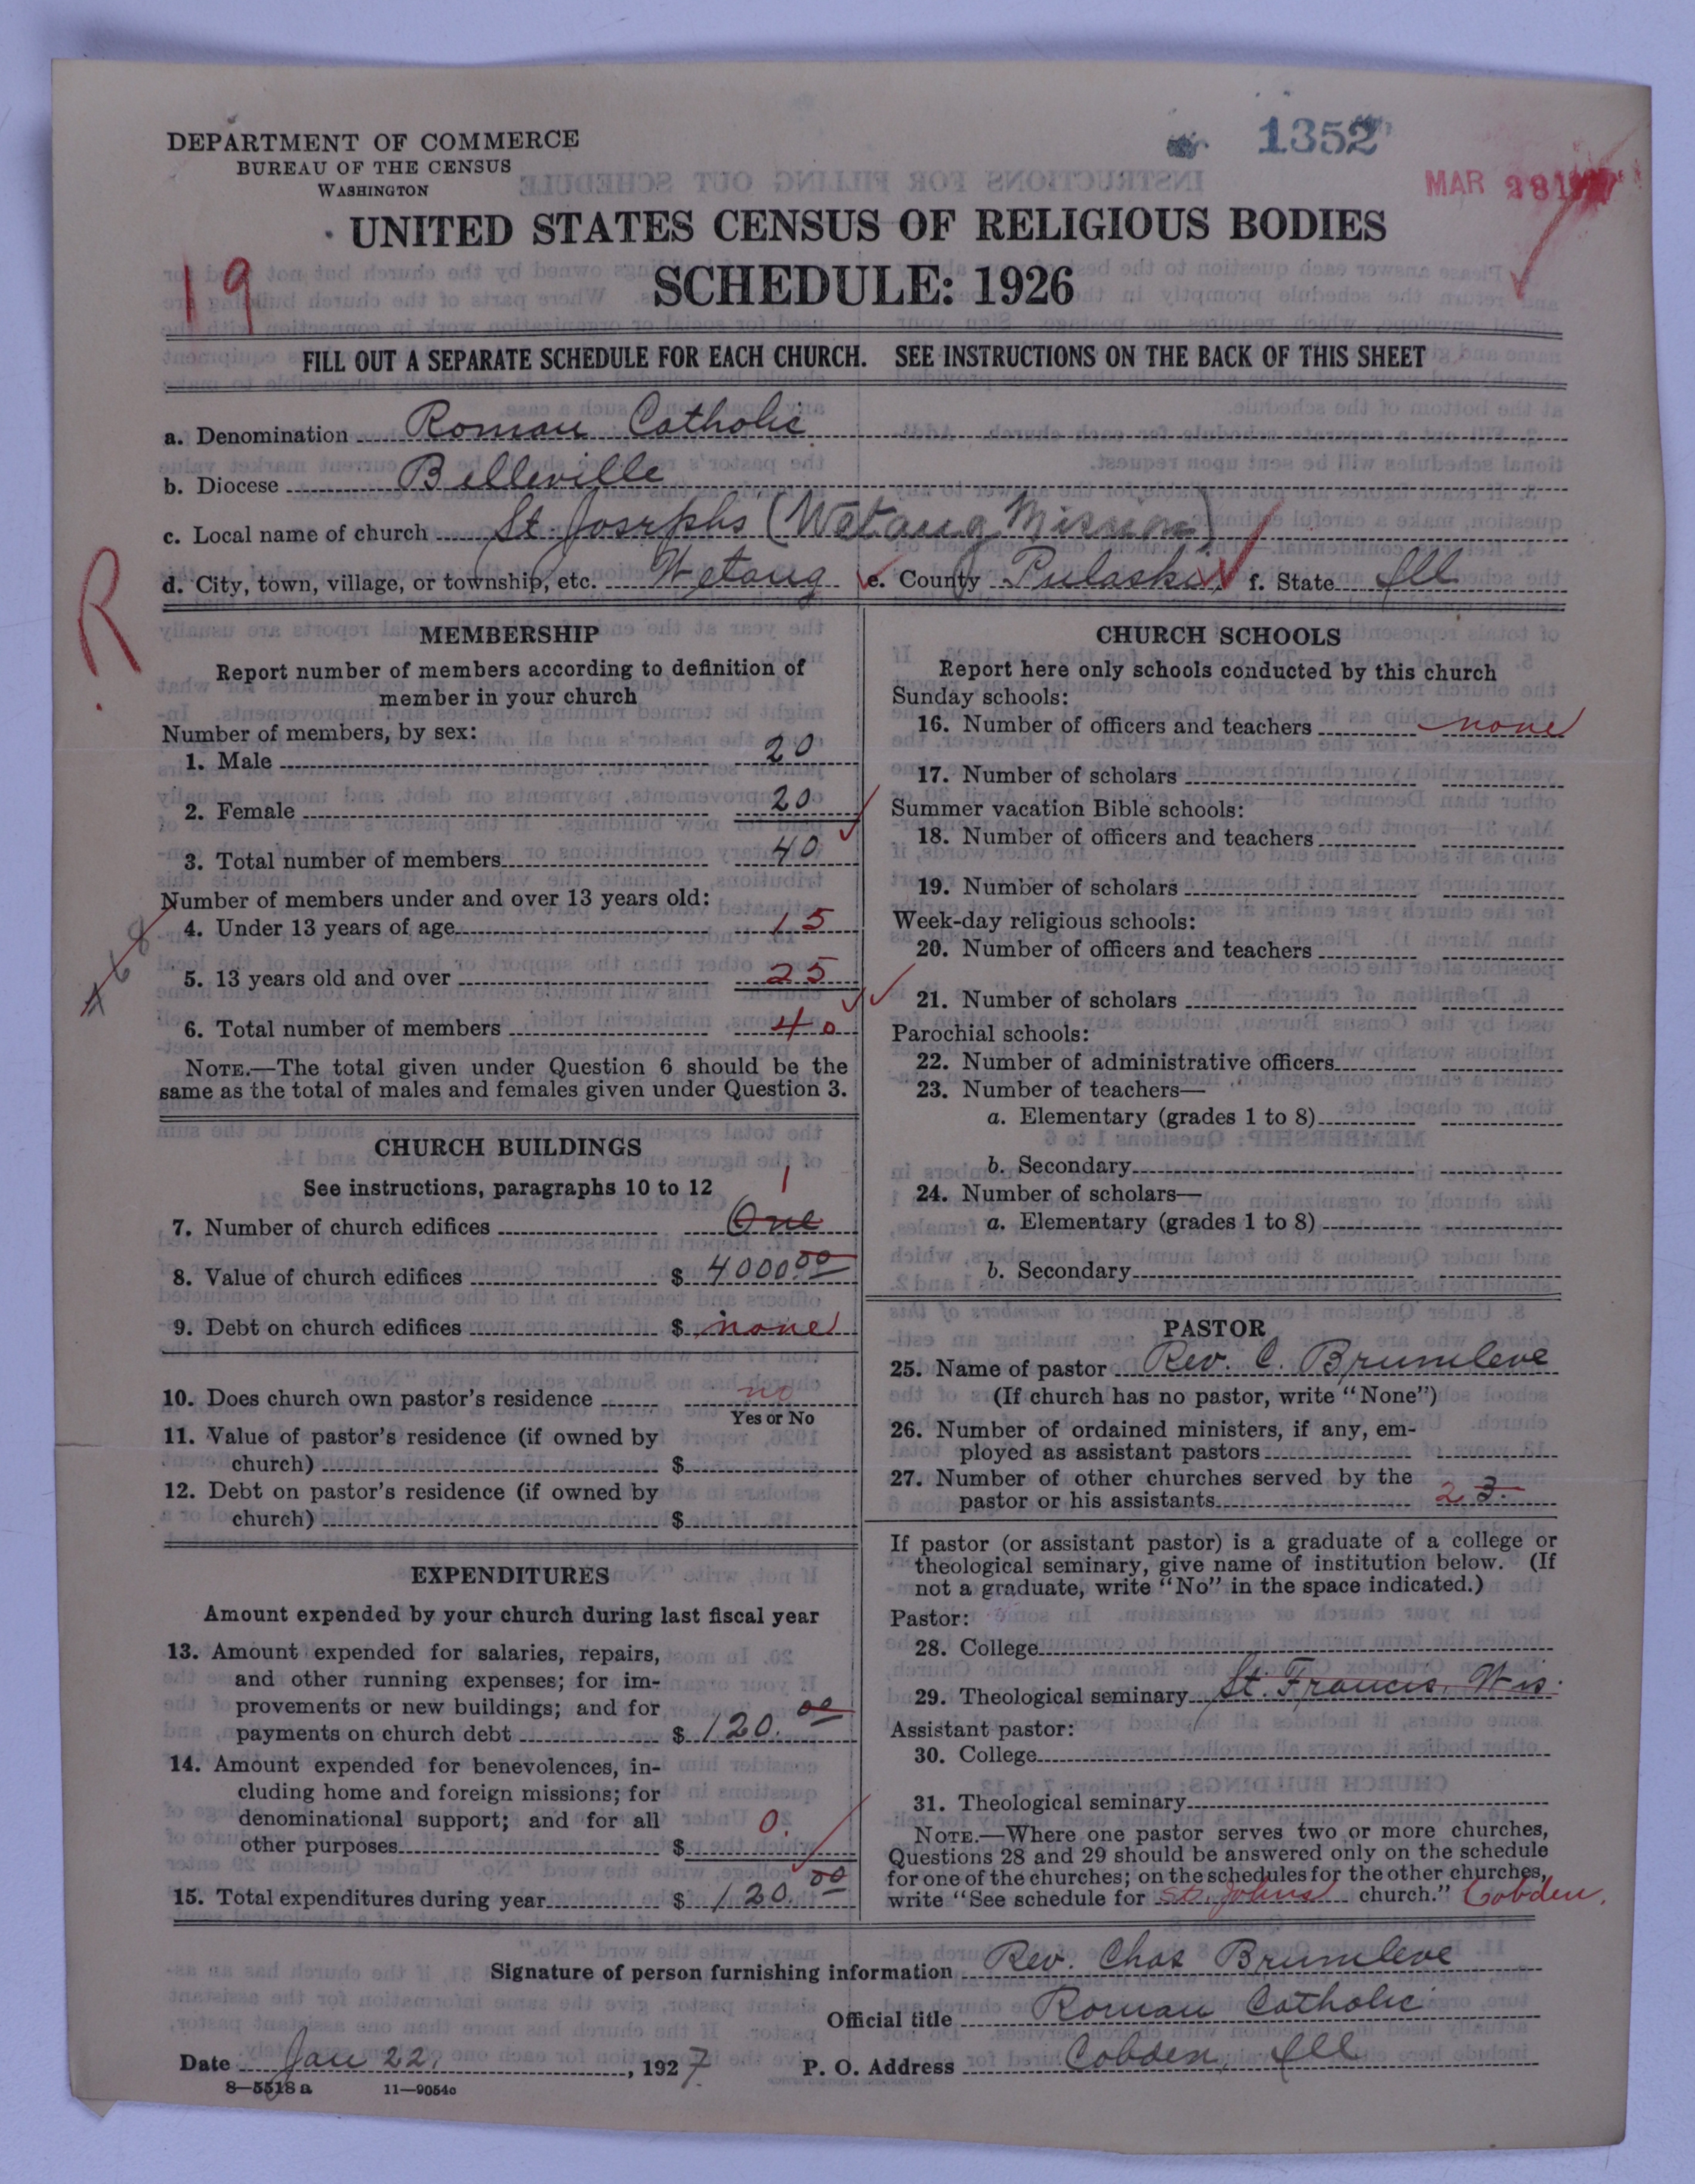 DEPARTMENT OF COMMERCE
BUREAU OF THE CENSUS
WASHINGTON
1352
MAR 28
UNITED STATES CENSUS OF RELIGIOUS BODIES
19
SCHEDULE: 1926
FILL OUT A SEPARATE SCHEDULE FOR EACH CHURCH. SEE INSTRUCTIONS ON THE BACK OF THIS SHEET
a. Denomination Roman Catholic
b. Diocese Belleville
c. Local name of church St. Josephs (Wetaug Mission)
d. City, town, village, or township, etc. Wetaug e. County Pulaski f. State Ill
R
MEMBERSHIP
Report number of members according to definition of
member in your church
Number of members, by sex:
1. Male 20
2. Female 20
3. Total number of members 40
Number of members under and over 13 years old:
4. Under 13 years of age 15
5. 13 years old and over 25
6. Total number of members 40
NOTE.—The total given under Question 6 should be the
same as the total of males and females given under Question 3.
CHURCH BUILDINGS
See instructions, paragraphs 10 to 12
1
7. Number of church edifices One
8. Value of church edifices $ 4000.00
9. Debt on church edifices $ none
10. Does church own pastor's residence no
Yes or No
11. Value of pastor's residence (if owned by
church) $
12. Debt on pastor's residence (if owned by
church) $
EXPENDITURES
Amount expended by your church during last fiscal year
13. Amount expended for salaries, repairs,
and other running expenses; for im-
provements or new buildings; and for
payments on church debt $ 120.00
14. Amount expended for benevolences, in-
cluding home and foreign missions; for
denominational support; and for all
other purposes $ 0.
15. Total expenditures during year $ 120.00
CHURCH SCHOOLS
Report here only schools conducted by this church
Sunday schools:
16. Number of officers and teachers none
17. Number of scholars
Summer vacation Bible schools:
18. Number of officers and teachers
19. Number of scholars
Week-day religious schools:
20. Number of officers and teachers
21. Number of scholars
Parochial schools:
22. Number of administrative officers
23. Number of teachers—
a. Elementary (grades 1 to 8)
b. Secondary
24. Number of scholars—
a. Elementary (grades 1 to 8)
b. Secondary
PASTOR
25. Name of pastor Rev. C. Brumleve
(If church has no pastor, write "None")
26. Number of ordained ministers, if any, em-
ployed as assistant pastors
27. Number of other churches served by the
pastor or his assistants 2 3.
If pastor (or assistant pastor) is a graduate of a college or
theological seminary, give name of institution below. (If
not a graduate, write "No" in the space indicated.)
Pastor:
28. College
29. Theological seminary St. Francis, Wis.
Assistant pastor:
30. College
31. Theological seminary
NOTE.—Where one pastor serves two or more churches,
Questions 28 and 29 should be answered only on the schedule
for one of the churches; on the schedules for the other churches,
write "See schedule for St. Johns church." Cobden.
Signature of person furnishing information Rev. Chas Brumleve
Official title Roman Catholic
Date Jan 22, 1927 P. O. Address Cobden, Ill
8—5518 a 11—9054c